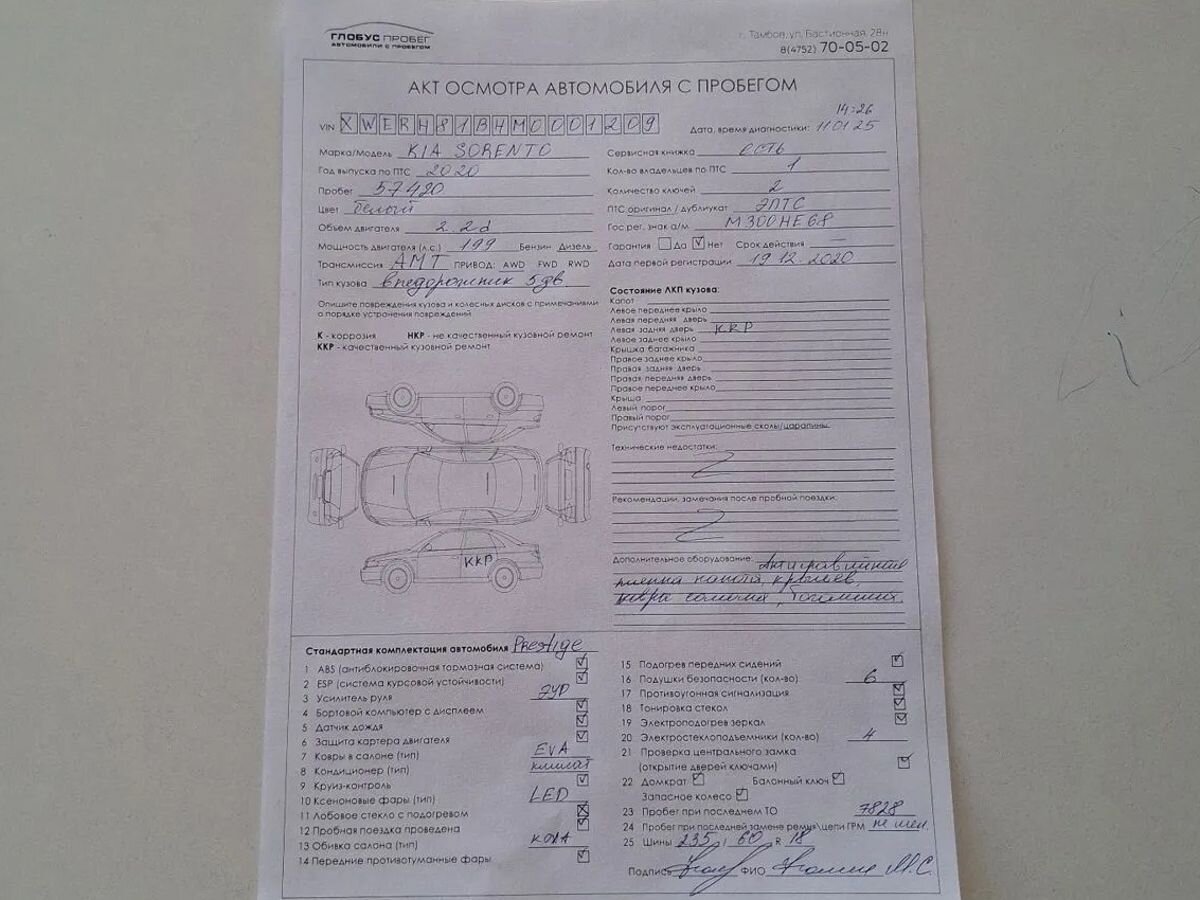 ГЛОБУС ПРОБЕГ
АВТОМОБИЛИ С ПРОБЕГОМ
г. Тамбов, ул. Бастионная, 28н
8(4752) 70-05-02
АКТ ОСМОТРА АВТОМОБИЛЯ С ПРОБЕГОМ
VIN XWERH81BHM0001209
14:26
Дата, время диагностики: 11 01 25
Марка/Модель KIA SORENTO
Год выпуска по ПТС 2020
Пробег 57420
Цвет белый
Объем двигателя 2.2d
Мощность двигателя (л.с.) 199 Бензин Дизель
Трансмиссия АМТ ПРИВОД: AWD FWD RWD
Тип кузова внедорожник 5дв.
Опишите повреждения кузова и колесных дисков с примечаниями
о порядке устранения повреждений
К - коррозия НКР - не качественный кузовной ремонт
ККР - качественный кузовной ремонт
ККР
Сервисная книжка есть
Кол-во владельцев по ПТС 1
Количество ключей 2
ПТС оригинал / дубликат ЭПТС
Гос.рег. знак а/м М300НЕ68
Гарантия Да Нет Срок действия —
Дата первой регистрации 19.12.2020
Состояние ЛКП кузова:
Капот
Левое переднее крыло
Левая передняя дверь
Левая задняя дверь ККР
Левое заднее крыло
Крышка багажника
Правое заднее крыло
Правая задняя дверь
Правая передняя дверь
Правое переднее крыло
Крыша
Левый порог
Правый порог
Присутствуют эксплуатационные сколы/царапины.
Технические недостатки:
Рекомендации, замечания после пробной поездки:
Дополнительное оборудование: Антигравийная
пленка капота, крыльев,
ковры салона,
Стандартная комплектация автомобиля Prestige
1 ABS (антиблокировочная тормозная система)
2 ESP (система курсовой устойчивости)
3 Усилитель руля ЭУР
4 Бортовой компьютер с дисплеем
5 Датчик дождя
6 Защита картера двигателя
7 Ковры в салоне (тип) EVA
8 Кондиционер (тип) климат
9 Круиз-контроль
10 Ксеноновые фары (тип) LED
11 Лобовое стекло с подогревом
12 Пробная поездка проведена
13 Обивка салона (тип) кожа
14 Передние противотуманые фары
15 Подогрев передних сидений
16 Подушки безопасности (кол-во) 6
17 Противоугонная сигнализация
18 Тонировка стекол
19 Электроподогрев зеркал
20 Электростеклоподъемники (кол-во) 4
21 Проверка центрального замка
(открытие дверей ключами)
22 Домкрат Балонный ключ
Запасное колесо
23 Пробег при последнем ТО 7828
24 Пробег при последней замене ремня\цепи ГРМ не мен.
25 Шины 235 / 60 R 18
Подпись ФИО М.С.